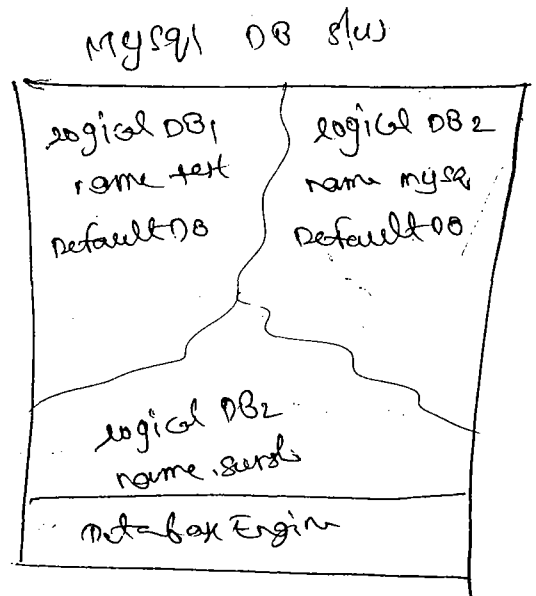 MySql DB s/w
logical DB1
name test
Default DB
logical DB2
name mysql
Default DB
logical DB2
name
Database Engine